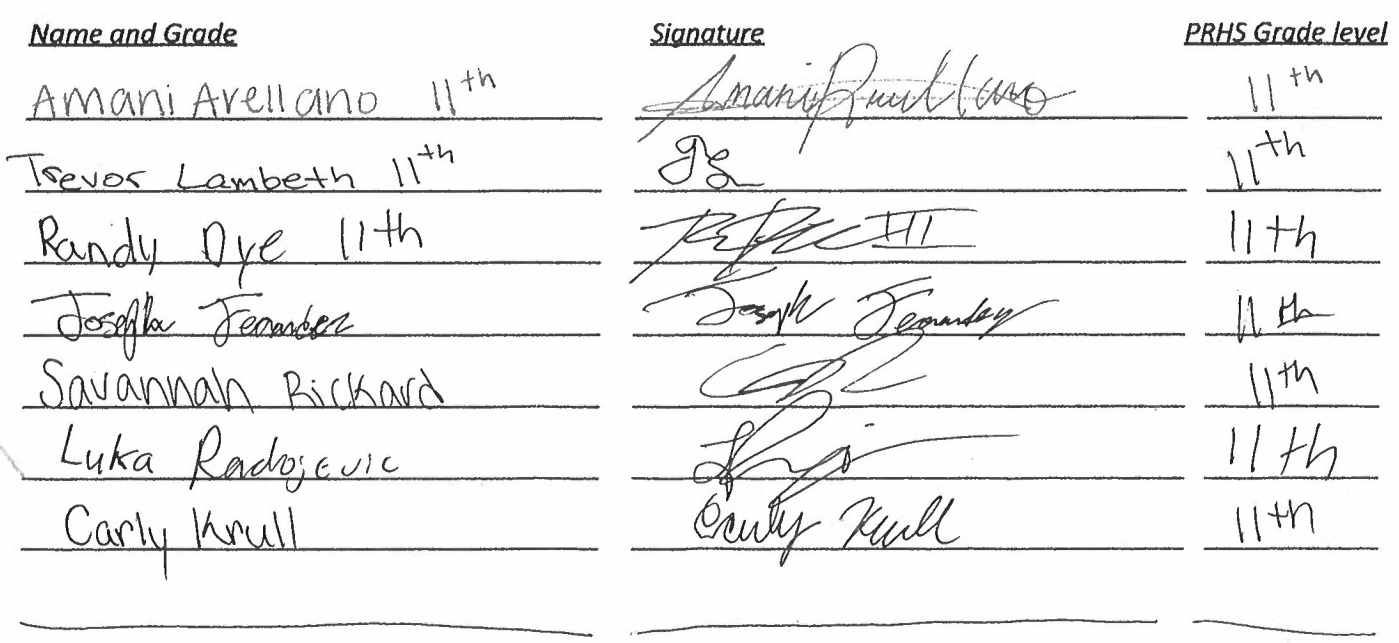 Name and Grade Signature PRHS Grade level
Amani Arellano 11th Amani Arellano 11th
Trevor Lambeth 11th 11th
Randy Dye 11th III 11th
Joseph Fernandez Joseph Fernandez 11th
Savannah Rickard 11th
Luka Radojevic 11th
Carly Krull Carly Krull 11th